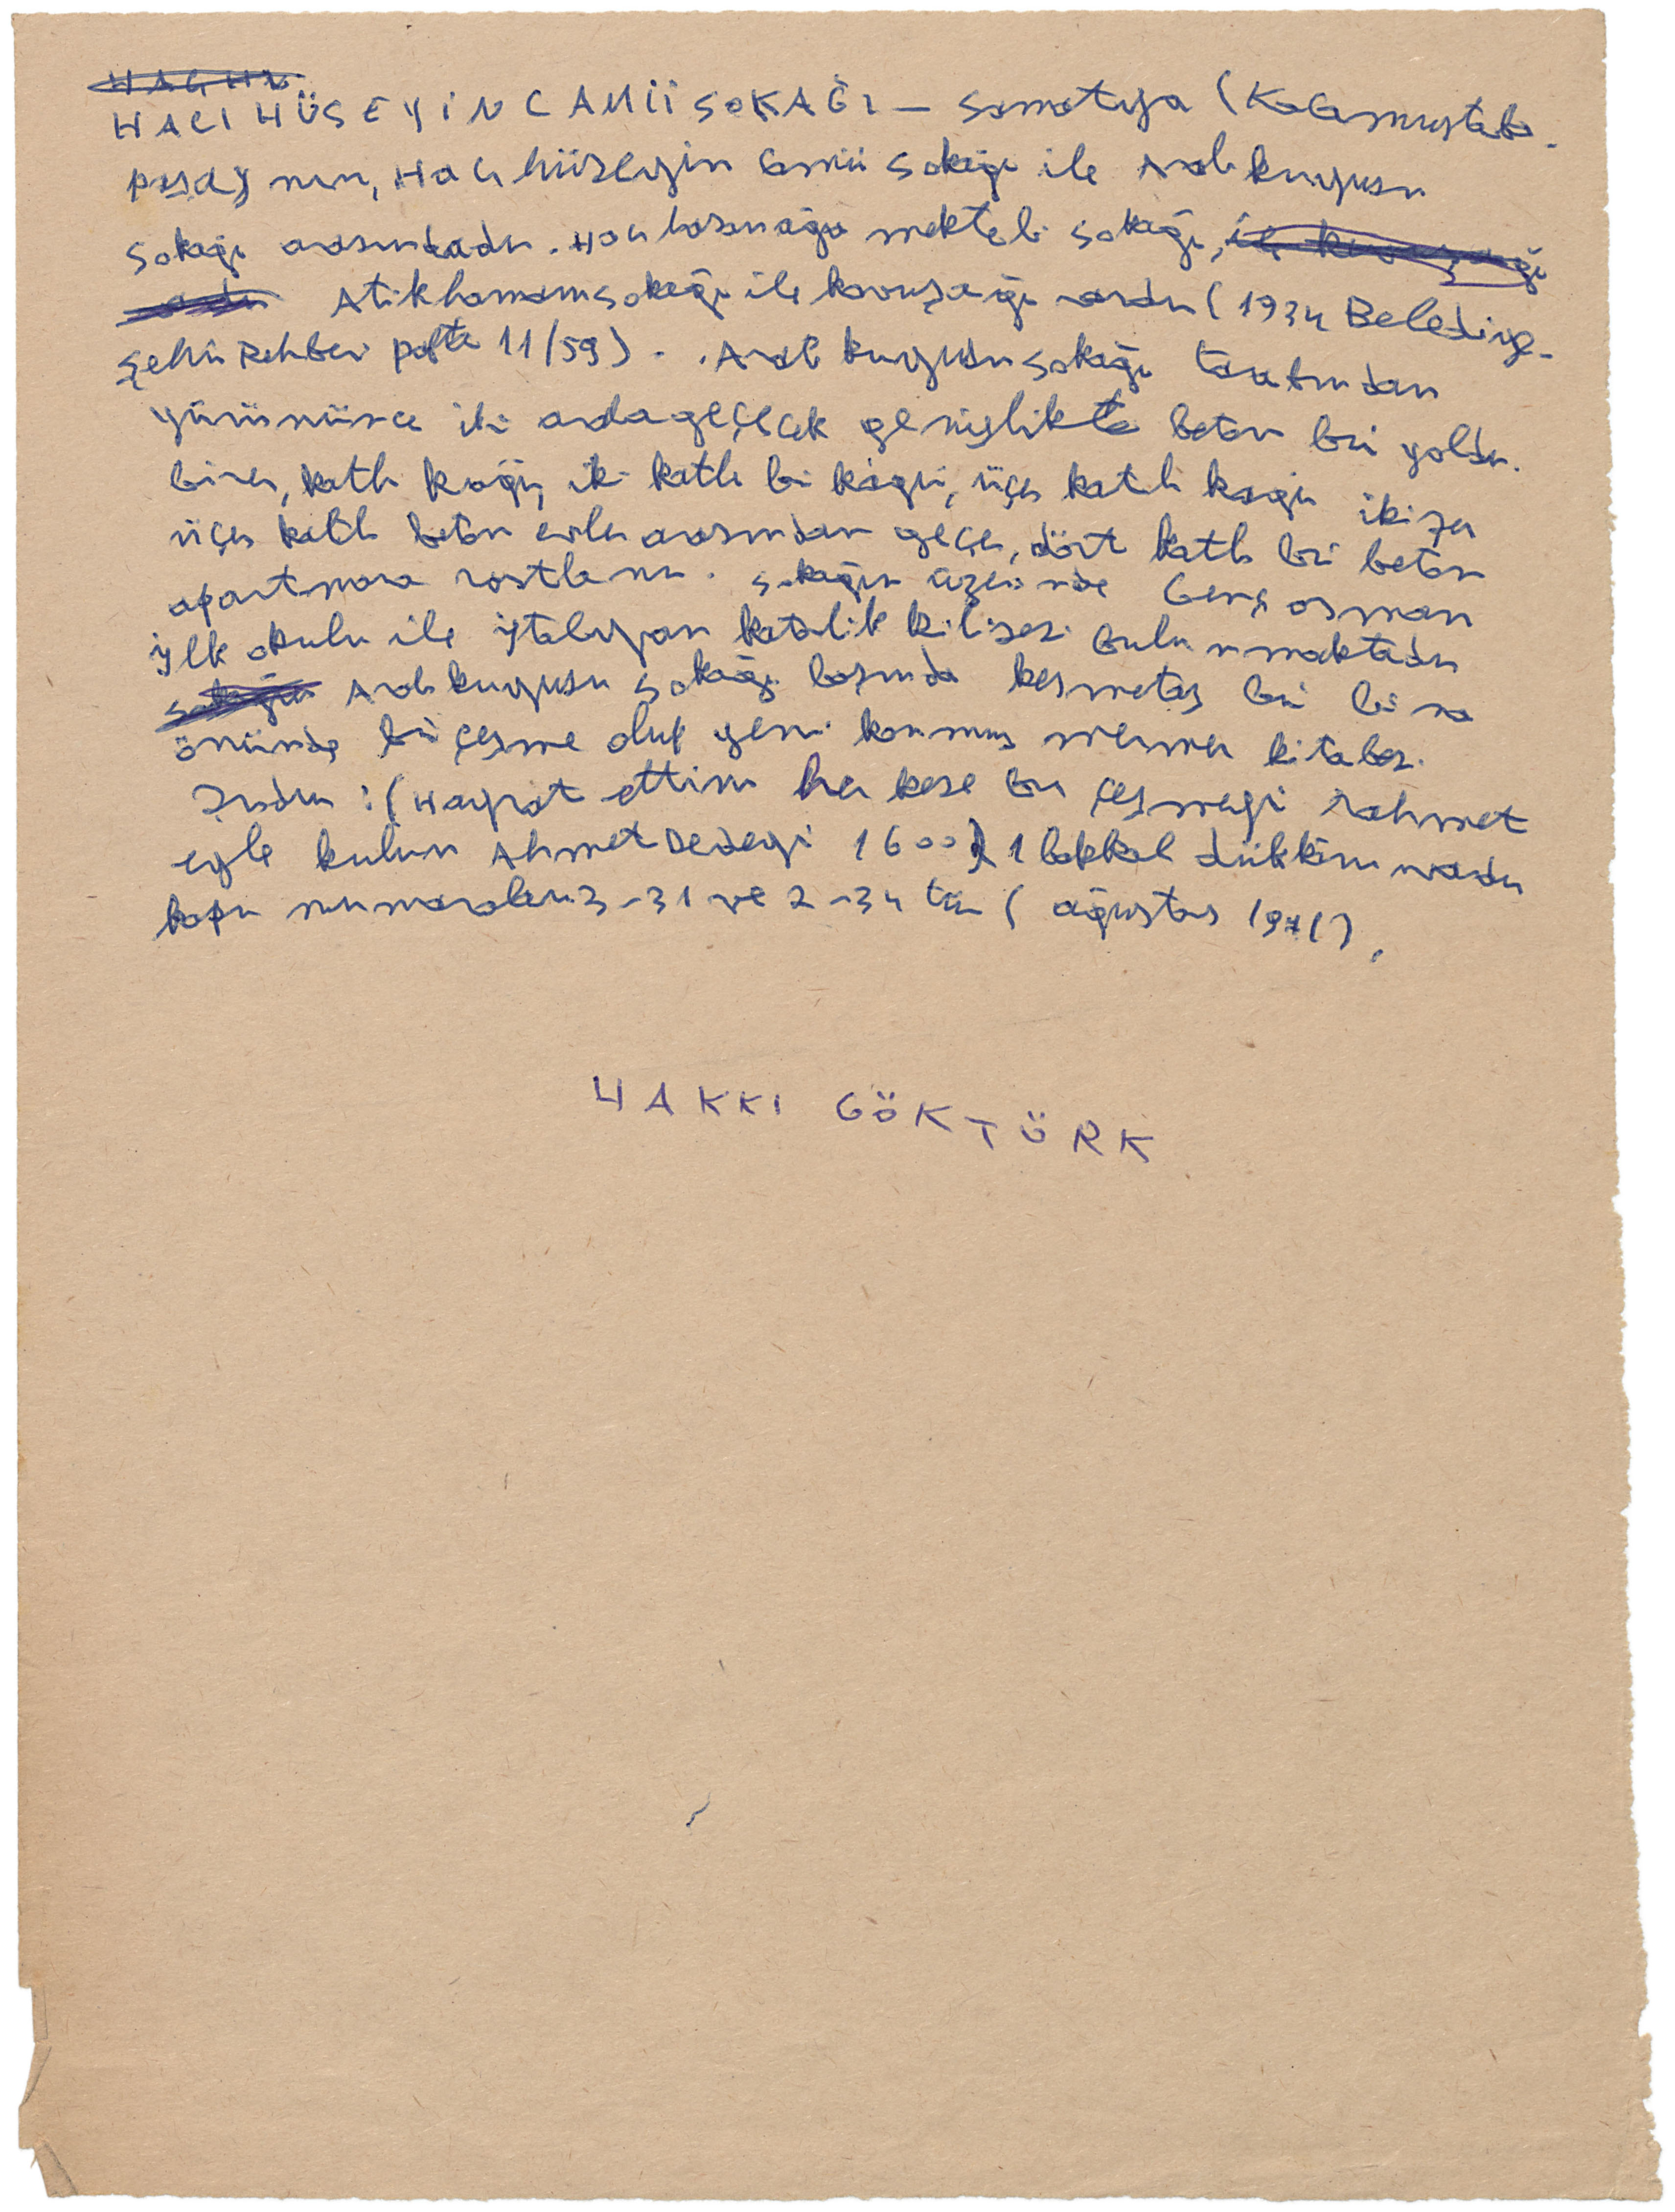 HACI HÜSEYİN CAMİİ SOKAĞI — Samatya (Kocamustafa-
paşa) nın, Hacı hüseyin Camii Sokağı ile Arab kuyusu
Sokağı arasındadır. Hacı hasanağa mektebi Sokağı,
Atikhamamsokağı ile kavuşağı vardır (1934 Belediye-
Şehir Rehberi pafta 11/59). . Arab kuyusu sokağı tarafından
yürünürse iki araba geçecek genişlikte beton bir yoldur.
birer, katlı kagir, iki katlı bir kagir, üçer katlı kagir ikizer
üçer katlı beton evler arasından geçer, dört katlı bir beton
apartmana rastlanır. Sokağın üzerinde Genç osman
İlk okulu ile İtalyan katolik kilisesi bulunmaktadır
Arab kuyusu Sokağı başında kesmetaş bir bina
önünde bir çeşme olup yeni konmuş mermer kitabesi
Şudur : (Hayrat ettim her kese bu çeşmeyi rahmet
eyle kulun Ahmet Dedeyi 1600) 1 bakkal dükkânı vardır
kapu numaraları 3-31 ve 2-34 tür (ağustos 1971).
HAKKI GÖKTÜRK